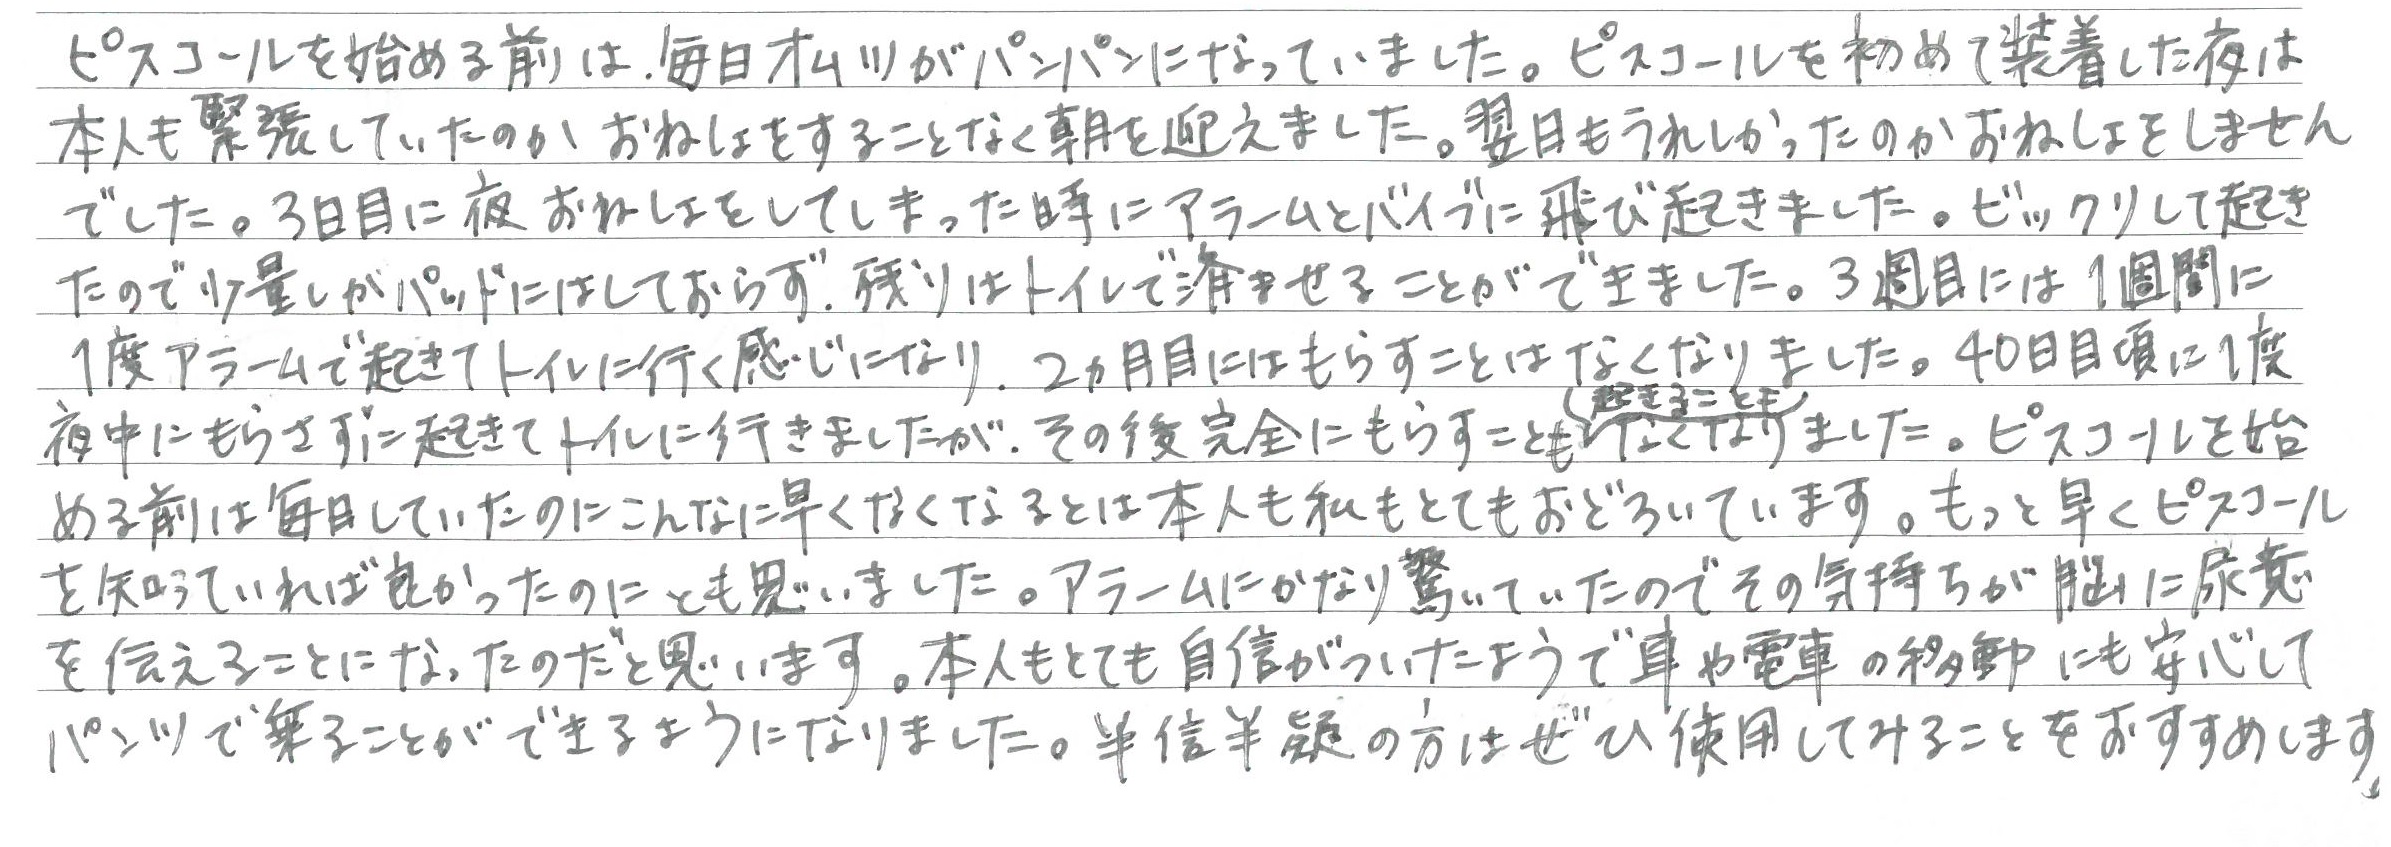 ピスコールを始める前は、毎日オムツがパンパンになっていました。ピスコールを初めて装着した夜は
本人も緊張していたのか おねしょをすることなく朝を迎えました。翌日もうれしかったのかおねしょをしません
でした。3日目に夜おねしょをしてしまった時にアラームとバイブに飛び起きました。ビックリして起き
たので少量しかパッドにはしておらず、残りはトイレで済ませることができました。3週目には1週間に
1度アラームで起きてトイレに行く感じになり、2ヵ月目にはもらすことはなくなりました。40日目頃に1度
夜中にもらさずに起きてトイレに行きましたが、その後完全にもらすことも起きることもなくなりました。ピスコールを始
める前は毎日していたのにこんなに早くなくなるとは本人も私もとてもおどろいています。もっと早くピスコール
を知っていれば良かったのにとも思いました。アラームにかなり驚いていたのでその気持ちが脳に尿意
を伝えることになったのだと思います。本人もとても自信がついたようで車や電車の移動にも安心して
パンツで乗ることができるようになりました。半信半疑の方はぜひ使用してみることをおすすめします。